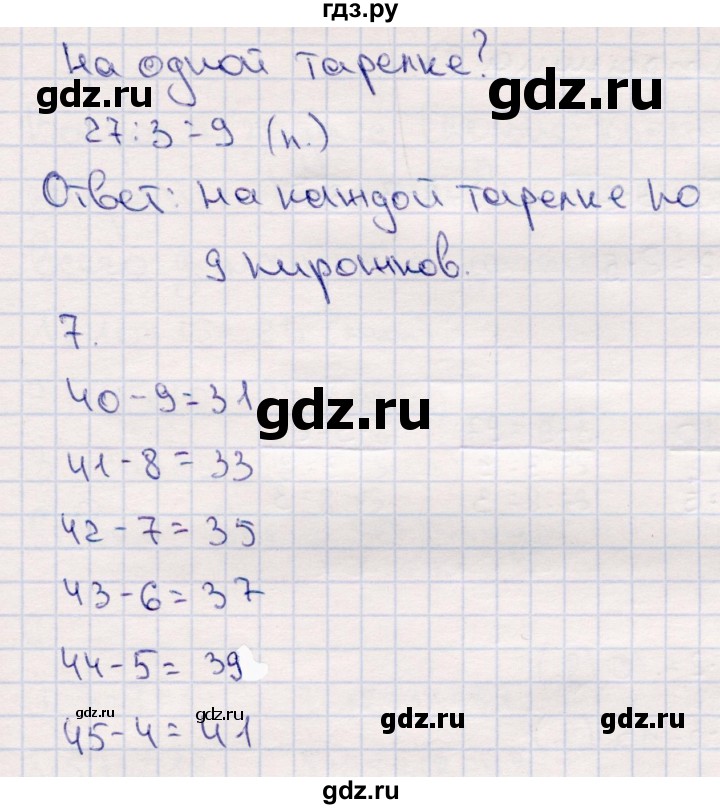 гдз.ру
на одной тарелке?
gdz.ru
gdz.ru
27:3=9 (п.)
Ответ: на каждой тарелке по
9 пирожков.
7.
40-9=31
gdz.ru
41-8=33
42-7=35
43-6=37
44-5=39
gdz.ru
gdz.ru
gdz.ru
gdz.ru
45-4=41
gdz.ru